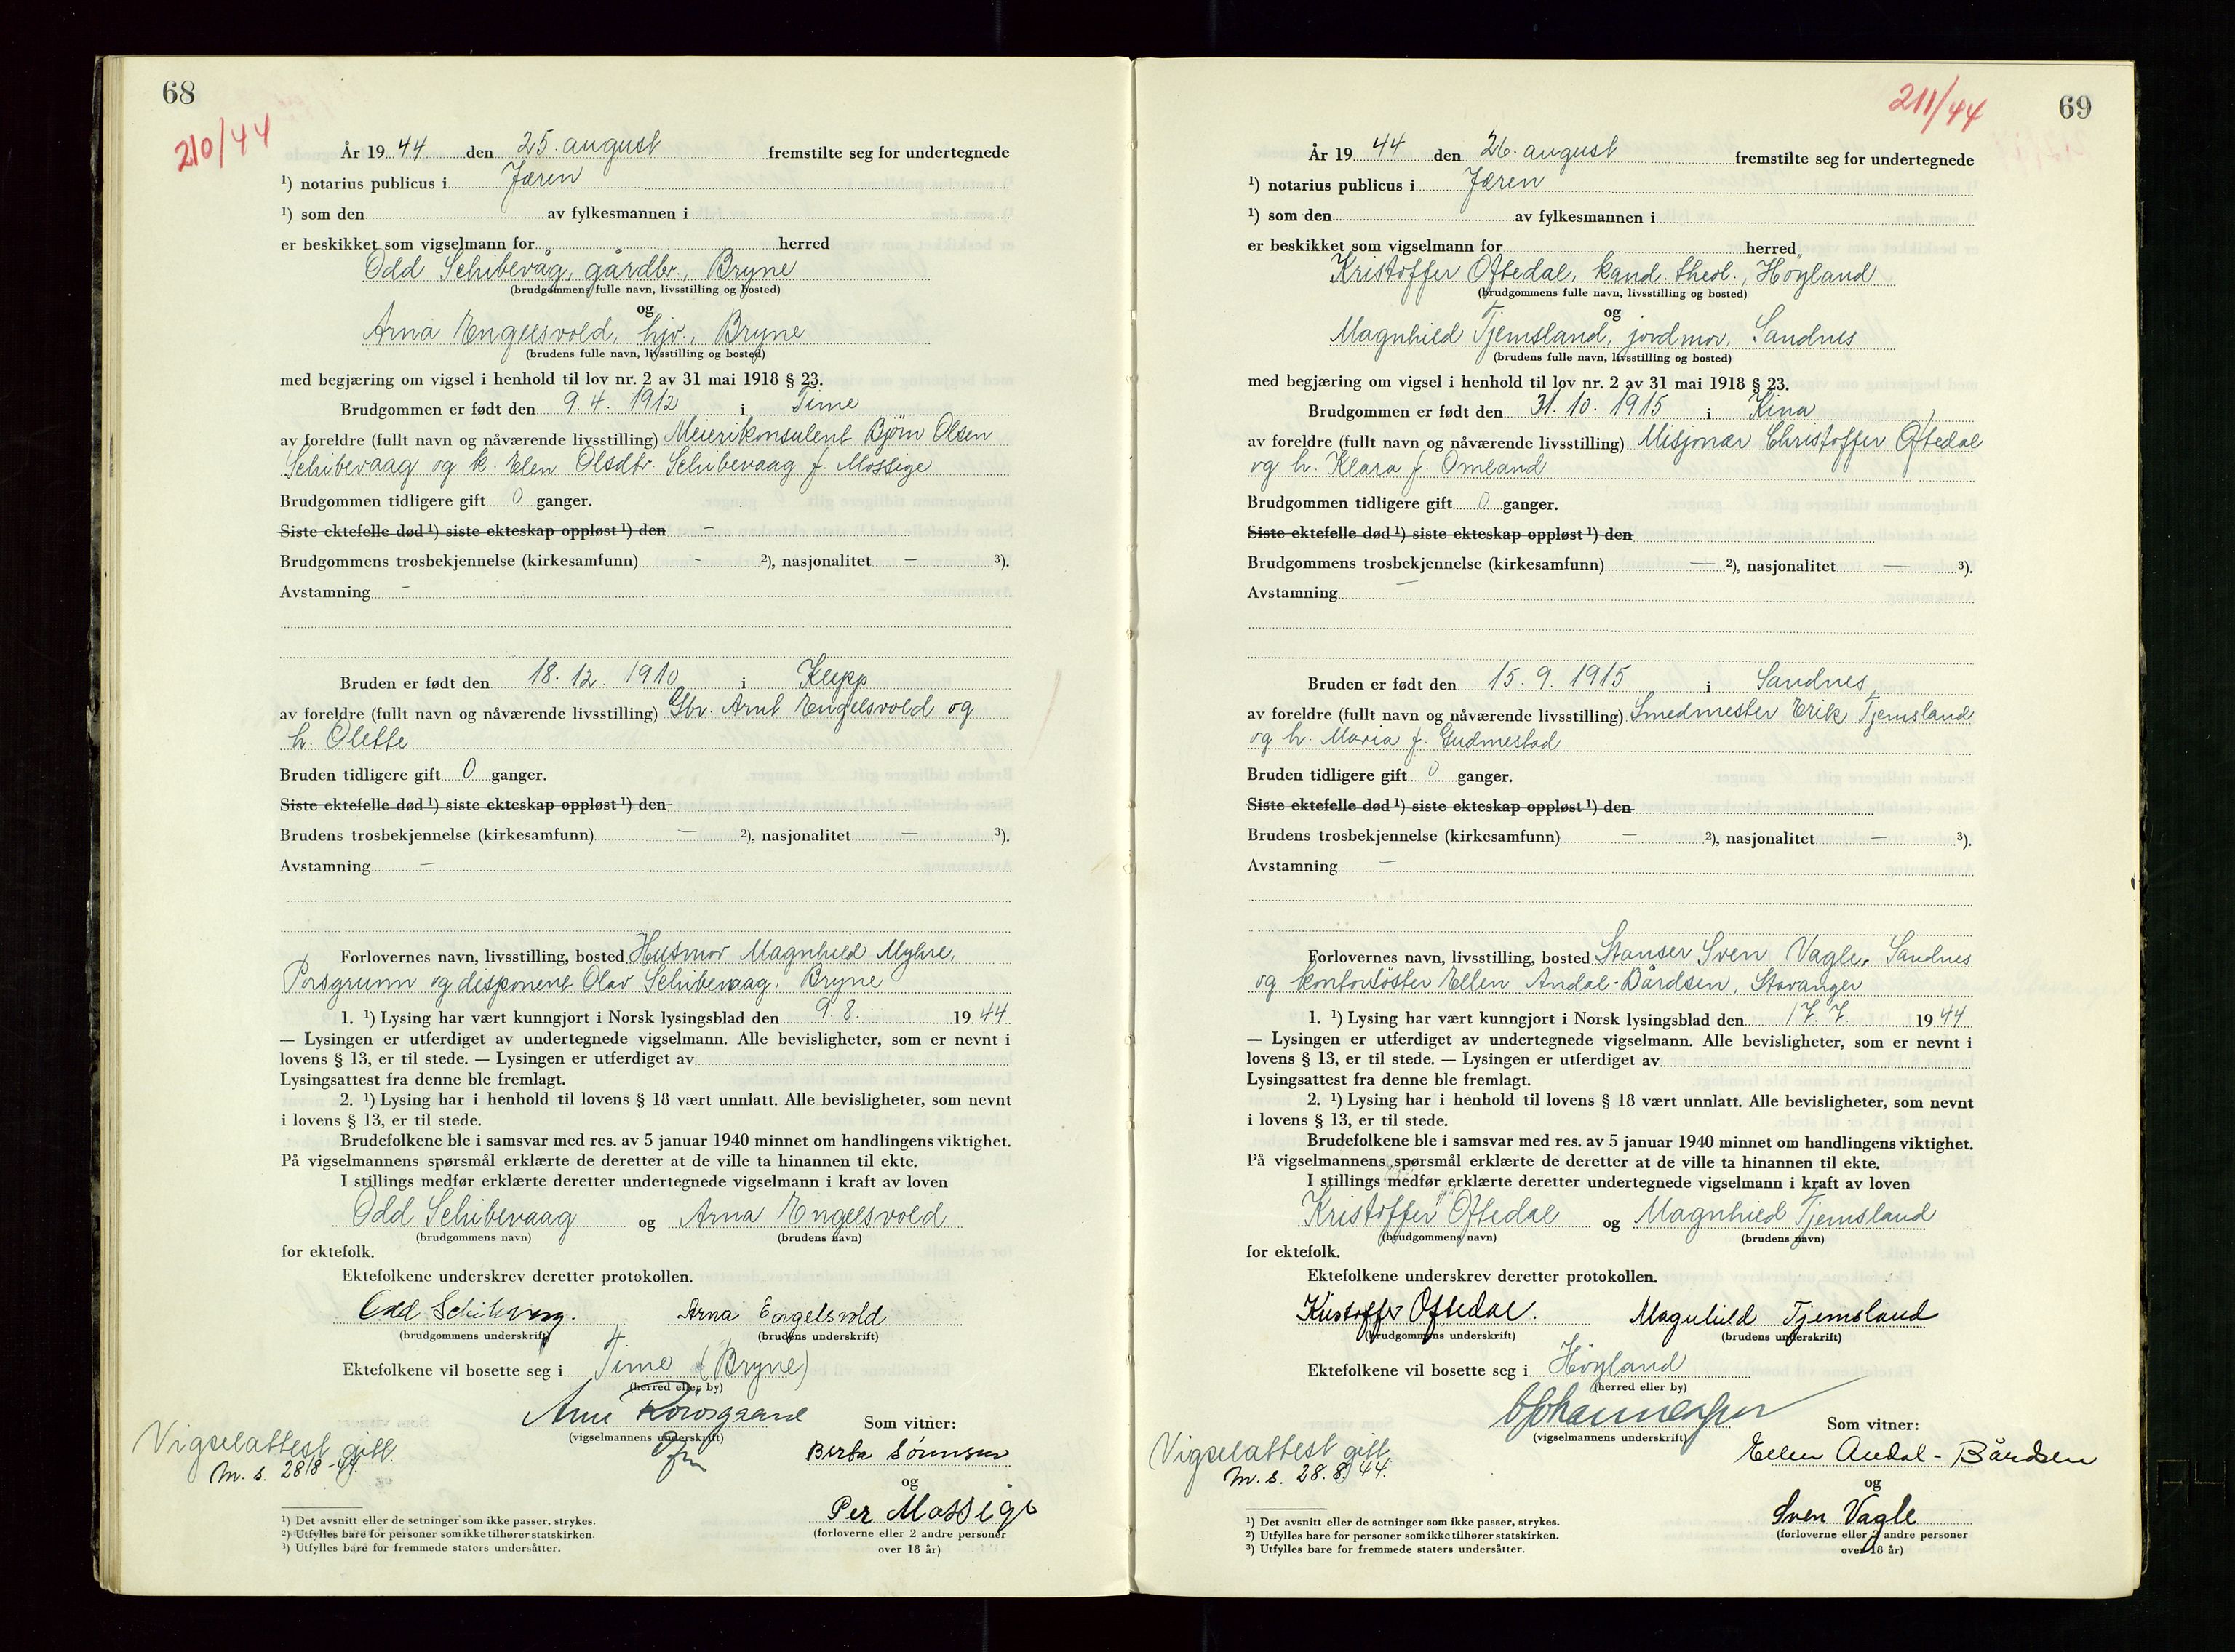 68
210/44
År 19 44 den 25. august fremstilte seg for undertegnede
¹) notarius publicus i Jæren
¹) som den av fylkesmannen i
er beskikket som vigselmann for herred
Odd Schibevåg, gårdbr., Bryne
(brudgommens fulle navn, livsstilling og bosted)
og
Arna Engelsvold, hjv., Bryne
(brudens fulle navn, livsstilling og bosted)
med begjæring om vigsel i henhold til lov nr. 2 av 31 mai 1918 § 23.
Brudgommen er født den 9. 4. 1912 i Time
av foreldre (fullt navn og nåværende livsstilling) Meierikonsulent Bjørn Olsen
Schibevaag og h. Elen Olsdtr. Schibevaag f. Mossige
Brudgommen tidligere gift 0 ganger.
Siste ektefelle død ¹) siste ekteskap oppløst ¹) den -
Brudgommens trosbekjennelse (kirkesamfunn) - ²), nasjonalitet — ³).
Avstamning -
Bruden er født den 18. 12. 1910 i Klepp
av foreldre (fullt navn og nåværende livsstilling) Gbr. Arnt Engelsvold og
h. Olette
Bruden tidligere gift 0 ganger.
Siste ektefelle død ¹) siste ekteskap oppløst ¹) den
Brudens trosbekjennelse (kirkesamfunn) — ²), nasjonalitet — ³).
Avstamning —
Forlovernes navn, livsstilling, bosted Husmor Magnhild Myhre,
Porsgrunn og disponent Olav Schibevaag, Bryne
1. ¹) Lysing har vært kunngjort i Norsk lysingsblad den 9. 8. 19 44
— Lysingen er utferdiget av undertegnede vigselmann. Alle bevisligheter, som er nevnt i
lovens § 13, er til stede. — Lysingen er utferdiget av
Lysingsattest fra denne ble fremlagt.
2. ¹) Lysing har i henhold til lovens § 18 vært unnlatt. Alle bevisligheter, som nevnt
i lovens § 13, er til stede.
Brudefolkene ble i samsvar med res. av 5 januar 1940 minnet om handlingens viktighet.
På vigselmannens spørsmål erklærte de deretter at de ville ta hinannen til ekte.
I stillings medfør erklærte deretter undertegnede vigselmann i kraft av loven
Odd Schibevaag og Arna Engelsvold
(brudgommens navn) (brudens navn)
for ektefolk.
Ektefolkene underskrev deretter protokollen.
Odd Schibevaag. Arna Engelsvold
(brudgommens underskrift) (brudens underskrift)
Ektefolkene vil bosette seg i Time (Bryne)
(herred eller by)
Arne
(vigselmannens underskrift)
Som vitner:
Vigselattest gitt.
M. s. 28/8-44.
Berta Sørensen
og
Per Mossige
(forloverne eller 2 andre personer
over 18 år)
¹) Det avsnitt eller de setninger som ikke passer, strykes.
²) Utfylles bare for personer som ikke tilhører statskirken.
³) Utfylles bare for fremmede staters undersåtter.
69
211/44
År 19 44 den 26. august fremstilte seg for undertegnede
¹) notarius publicus i Jæren
¹) som den av fylkesmannen i
er beskikket som vigselmann for herred
Kristoffer Oftedal, kand. theol., Høyland
(brudgommens fulle navn, livsstilling og bosted)
og
Magnhild Tjemsland, jordmor, Sandnes
(brudens fulle navn, livsstilling og bosted)
med begjæring om vigsel i henhold til lov nr. 2 av 31 mai 1918 § 23.
Brudgommen er født den 31. 10. 1915 i Kina
av foreldre (fullt navn og nåværende livsstilling) Misjonær Christoffer Oftedal
og h. Klara f. Omland
Brudgommen tidligere gift 0 ganger.
Siste ektefelle død ¹) siste ekteskap oppløst ¹) den
Brudgommens trosbekjennelse (kirkesamfunn) — ²), nasjonalitet — ³).
Avstamning —
Bruden er født den 15. 9. 1915 i Sandnes
av foreldre (fullt navn og nåværende livsstilling) Smedmester Erik Tjemsland
og h. Maria f. Gudmestad
Bruden tidligere gift 0 ganger.
Siste ektefelle død ¹) siste ekteskap oppløst ¹) den
Brudens trosbekjennelse (kirkesamfunn) — ²), nasjonalitet — ³).
Avstamning —
Forlovernes navn, livsstilling, bosted Stanser Sven Vagle, Sandnes
og kontorsöster Ellen Andal-Bårdsen, Stavanger
1. ¹) Lysing har vært kunngjort i Norsk lysingsblad den 17. 7. 19 44
— Lysingen er utferdiget av undertegnede vigselmann. Alle bevisligheter, som er nevnt i
lovens § 13, er til stede. — Lysingen er utferdiget av
Lysingsattest fra denne ble fremlagt.
2. ¹) Lysing har i henhold til lovens § 18 vært unnlatt. Alle bevisligheter, som nevnt
i lovens § 13, er til stede.
Brudefolkene ble i samsvar med res. av 5 januar 1940 minnet om handlingens viktighet.
På vigselmannens spørsmål erklærte de deretter at de ville ta hinannen til ekte.
I stillings medfør erklærte deretter undertegnede vigselmann i kraft av loven
Kristoffer Oftedal og Magnhild Tjemsland
(brudgommens navn) (brudens navn)
for ektefolk.
Ektefolkene underskrev deretter protokollen.
Kristoffer Oftedal. Magnhild Tjemsland
(brudgommens underskrift) (brudens underskrift)
Ektefolkene vil bosette seg i Høyland
(herred eller by)
(vigselmannens underskrift)
Som vitner:
Vigselattest gitt.
M. s. 28.8.44.
Ellen Andal-Bårdsen
og
Sven Vagle
(forloverne eller 2 andre personer
over 18 år)
¹) Det avsnitt eller de setninger som ikke passer, strykes.
²) Utfylles bare for personer som ikke tilhører statskirken.
³) Utfylles bare for fremmede staters undersåtter.